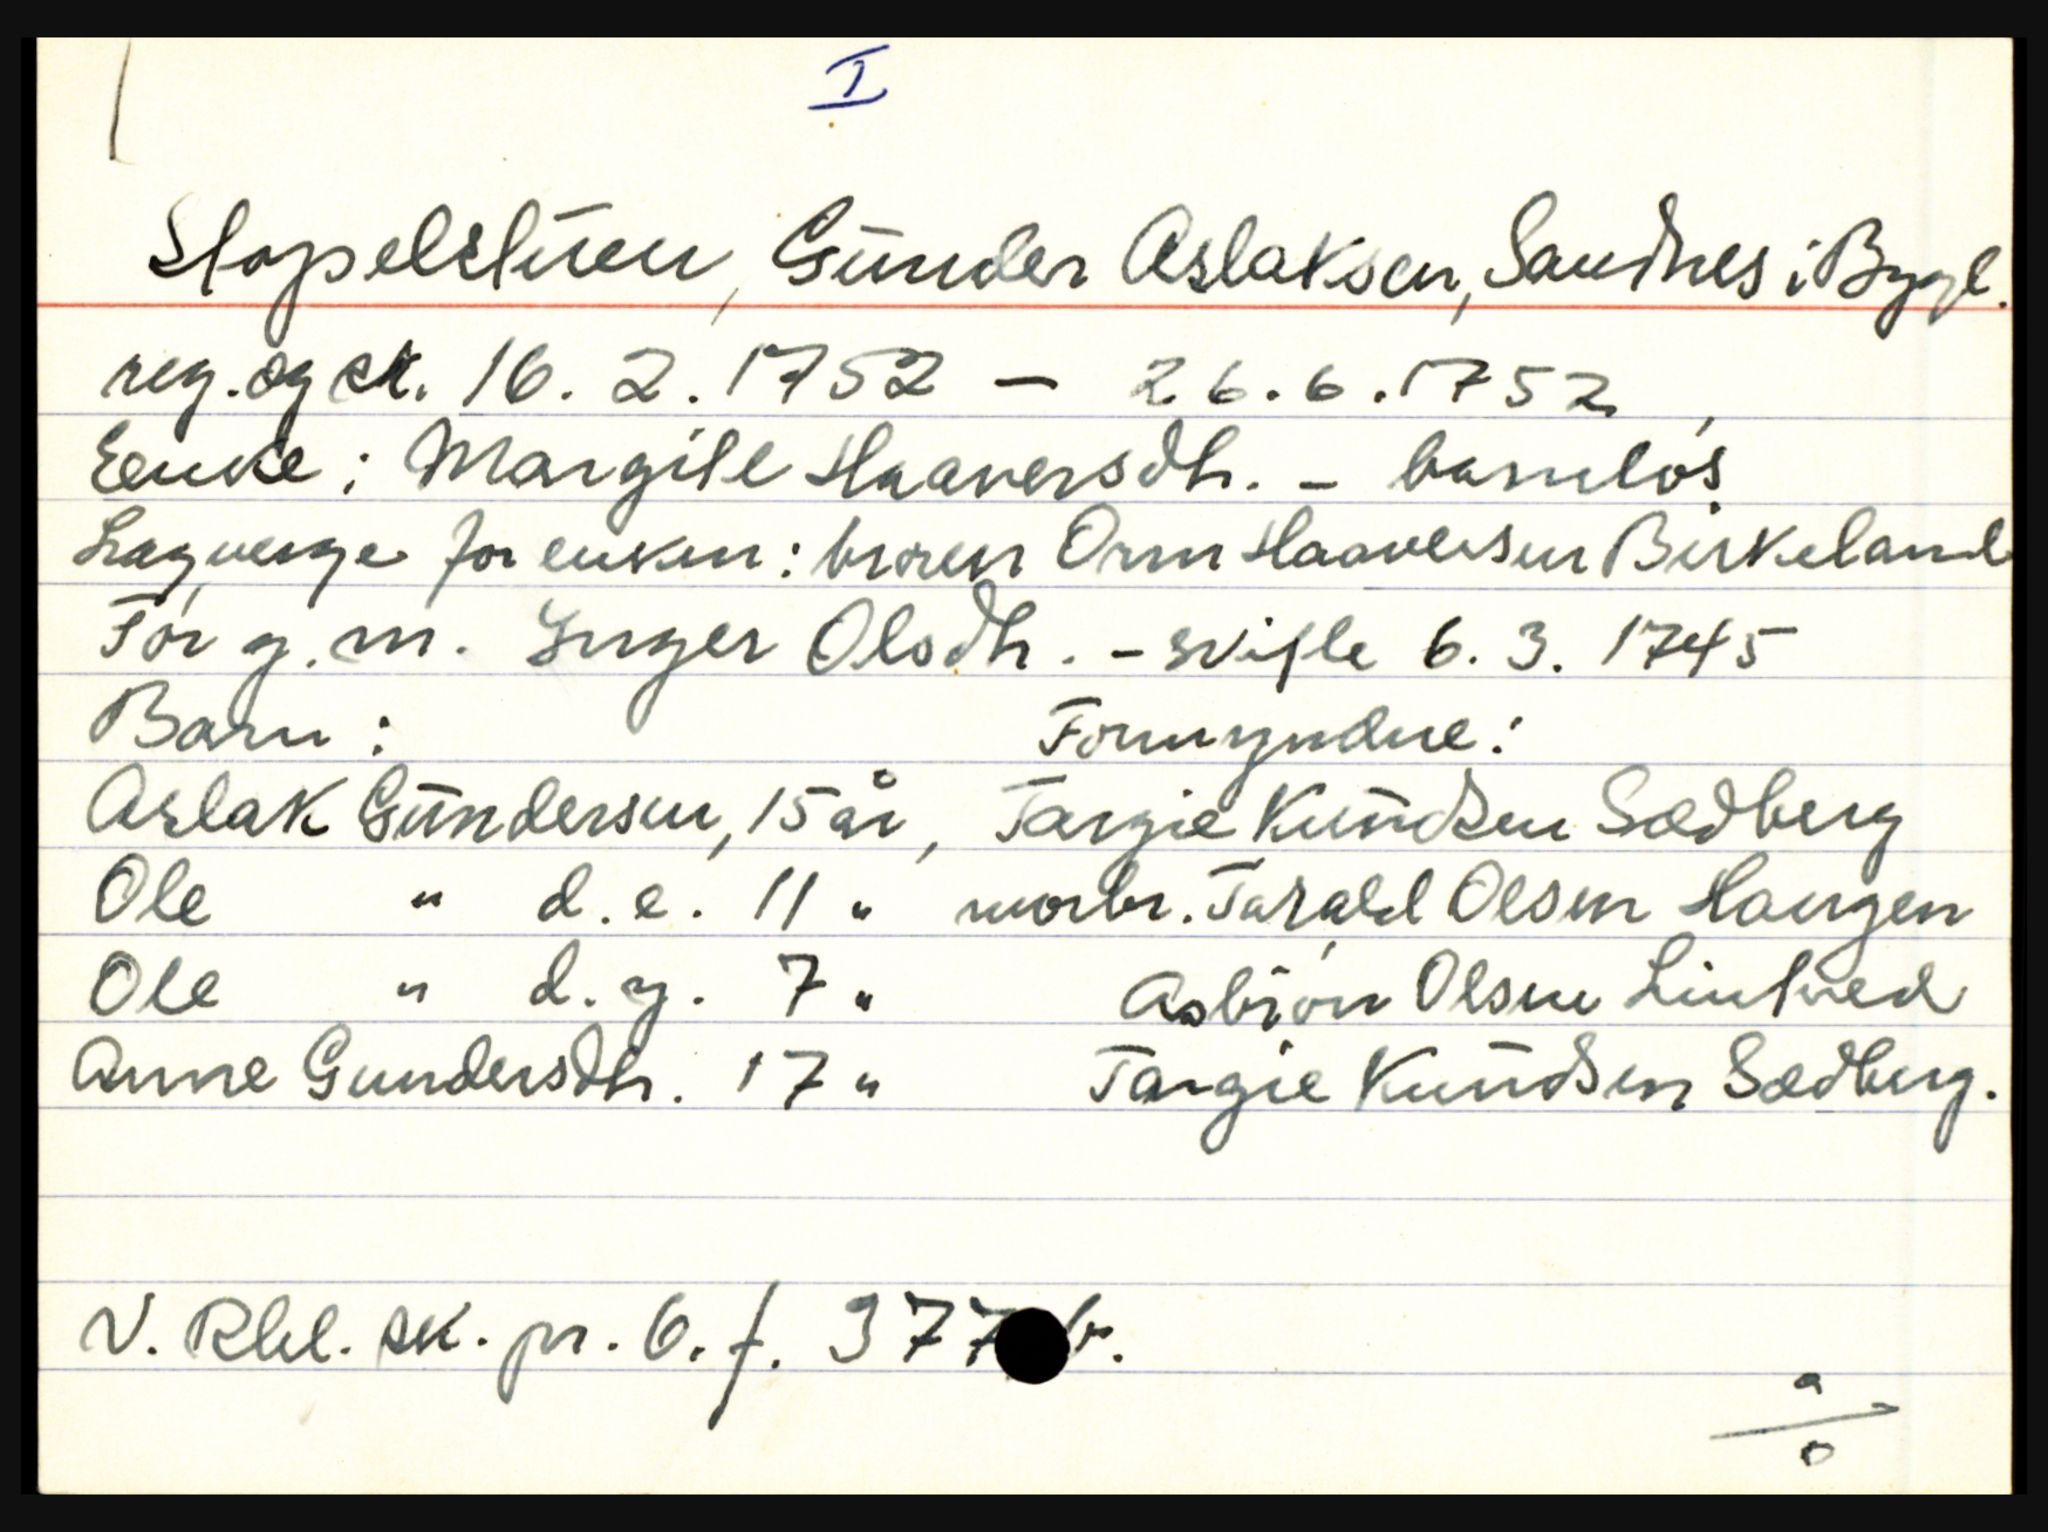 I
Stapelstuen, Gunder Aslaksen, Sandnes i Bygl.
reg. og sk. 16. 2. 1752 – 26. 6. 1752
Enke: Margitt Haaversdtr. – barnløs
Lagverge for enken: broren Orm Haaversen Birkeland
Før g. m. Inger Olsdtr. – skifte 6. 3. 1745
Barn: Formyndere:
Aslak Gundersen, 15 år, Targie Knudsen Sædberg
Ole " d. e. 11 " morbr. Tarald Olsen Haugen
Ole " d. y. 7 " Asbiøn Olsen Lintved
Anne Gundersdtr. 17 " Targie Knudsen Sædberg.
N. Rbl. sk. pr. 6. f. 377 b.
a
o